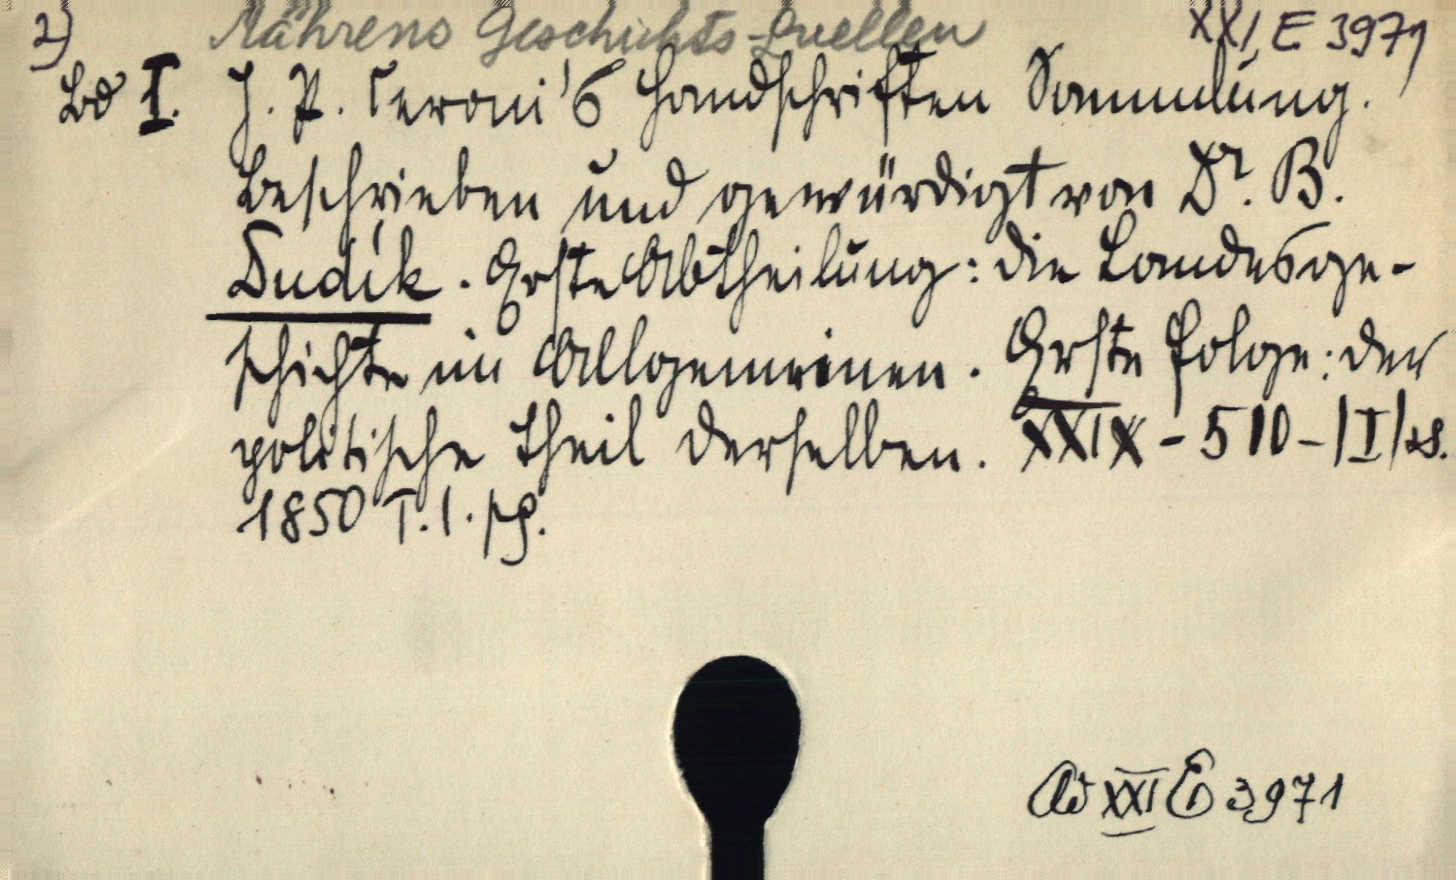 2) Mährens Geschichts-Quellen XXI, E 3971
Bd I. J. P. Ceroni's Handschriften Sammlung.
Beschrieben und gewürdigt von Dr. B.
Dudík. Erste Abtheilung: die Landesge-
schichte im Allgemeinen. Erste Folge: der
politische Theil derselben. XXIX-510-|I| ss.
1850 T.1. pg.
Ad XXI E 3971